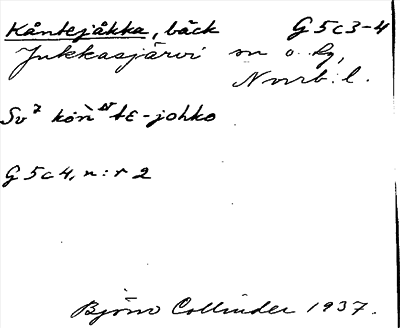 Kåntejåkka, bäck G5c3-4
Jukkasjärvi sn o. hg,
Norrb. l.
Sv⁷ kòn tɛ-johko
G5c4, n:r 2
Björn Collinder 1937.